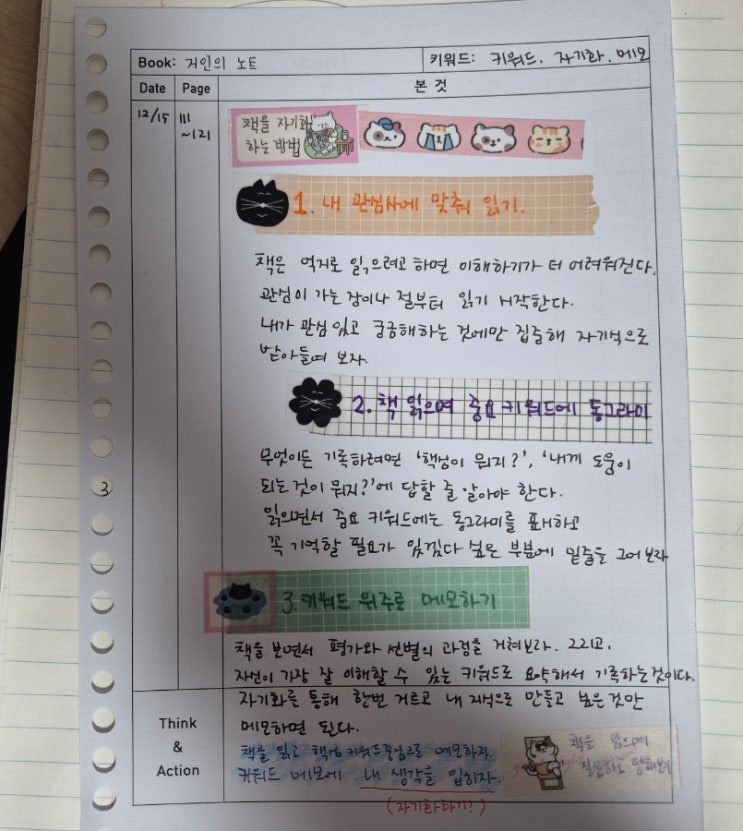 Book: 거인의 노트
키워드: 키워드. 자기화. 메모
Date
Page
본 것
12/15
111
~121
책을 자기화
하는 방법
1. 내 관심사에 맞춰 읽기.
책은 억지로 읽으려고 하면 이해하기가 더 어려워진다.
관심이 가는 장이나 절부터 읽기 시작한다.
내가 관심 있고 궁금해하는 것에만 집중해 자기식으로
받아들여 보자.
2. 책 읽으며 중요 키워드에 동그라미
무엇이든 기록하려면 '핵심이 뭐지?', '내게 도움이
되는 것이 뭐지?'에 답할 줄 알아야 한다.
읽으면서 중요 키워드에는 동그라미를 표시하고
꼭 기억할 필요가 있겠다 싶은 부분에 밑줄을 그어보자
3
3. 키워드 위주로 메모하기
책을 보면서 평가와 선별의 과정을 거쳐보라. 그리고,
자신이 가장 잘 이해할 수 있는 키워드로 요약해서 기록하는것이다.
자기화를 통해 한번 거르고 내 지식으로 만들고 싶은것만
메모하면 된다.
Think
&
Action
책을 읽고 핵심 키워드 중심으로 메모하자.
키워드 메모에 내 생각을 입히자.
(자기화하기!)
책을 읽으며
질문하고 답해보기